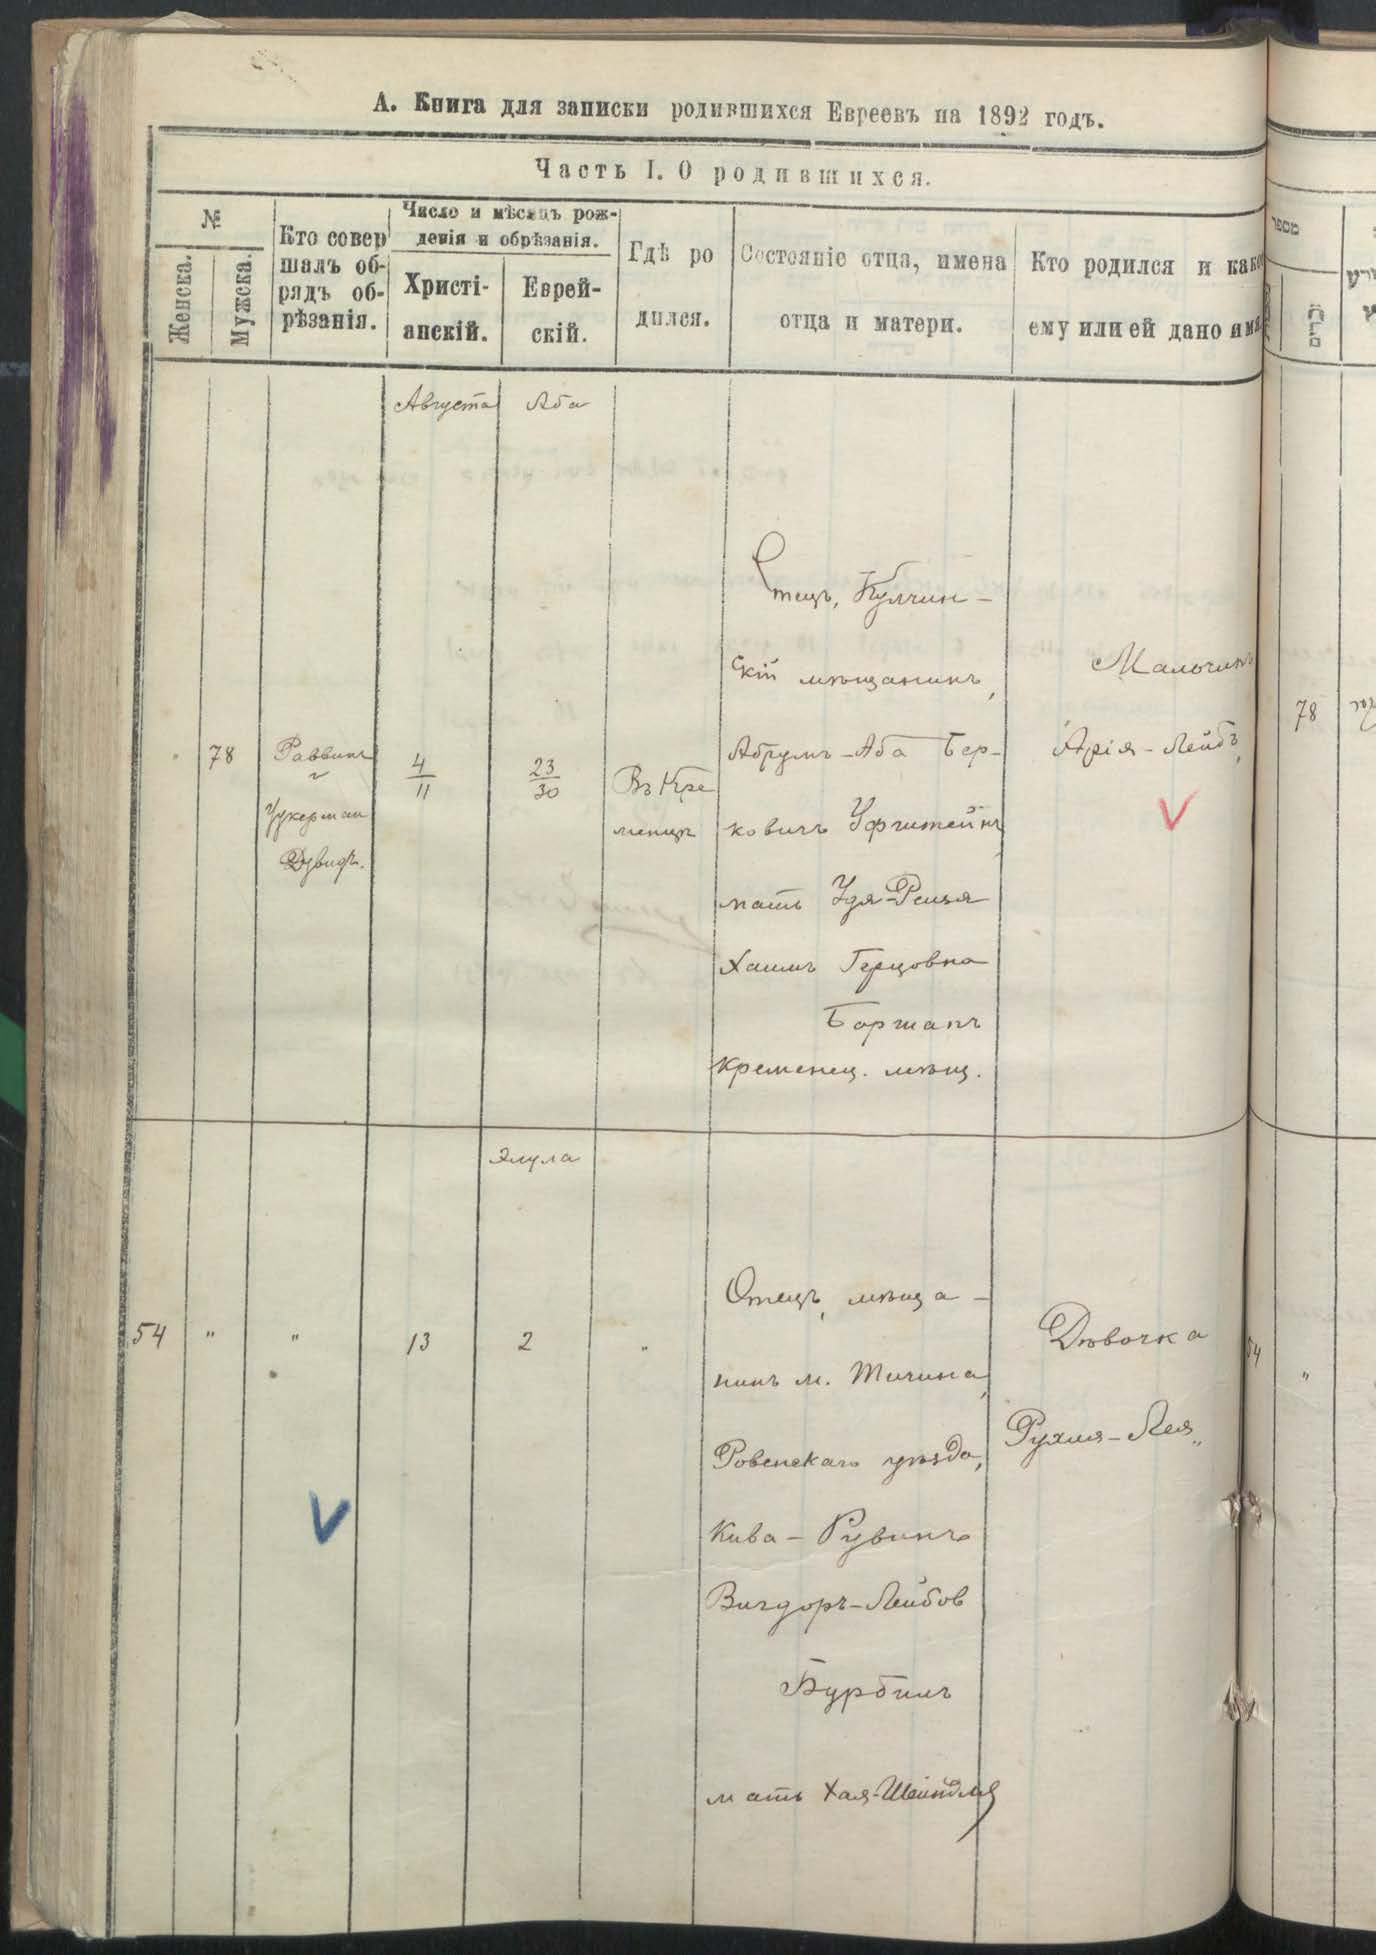 А. Книга для записки родившихся Евреевъ на 1892 годъ.
Часть I. О родившихся.
№
Женска.
Мужска.
Кто совер
шалъ об-
рядъ об-
рѣзанія.
Число и мѣсяцъ рож-
денія и обрѣзанія.
Христі-
анскій.
Еврей-
скій.
Гдѣ ро
дился.
Состояніе отца, имена
отца и матери.
Кто родился и како
ему или ей дано имя.
מספר
זכרים
Августа
Аба
78
Раввинъ
Цукерман
Дувидъ.
4
11
23
30
Въ Кре
менцѣ
Отецъ, Кулчин-
скій мѣщанинъ,
Абрумъ-Аба Бер-
ковичъ
мать Удя-Рейзя
Хаимъ Герцовна
Кременец. мѣщ.
Мальчикъ
Арія-Лейбъ,
78
Элула
54
"
"
13
2
"
Отецъ, мѣща-
нинъ м. Тучина,
Ровенскаго уѣзда,
Кива-Рувинъ
Вигдоръ-Лейбов
Бурбилъ
мать Хая-Шейндля
Дѣвочка
Рухля-Лея,,
54
"